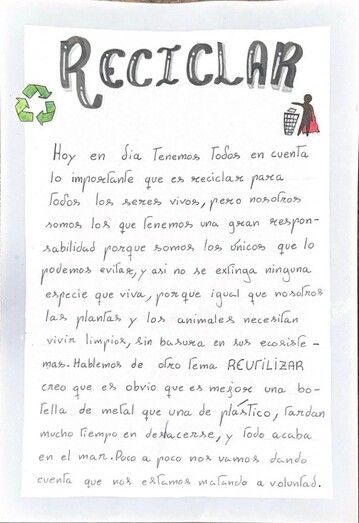 RECICLAR
Hoy en dia Tenemos Todos en cuenta
lo importante que es reciclar para
Todos los seres vivos, pero nosotros
somos los que Tenemos una gran respon-
sabilidad porque somos los únicos que lo
podemos evitar, y asi no se extinga ninguna
especie que viva, porque igual que nosotros
las plantas y los animales necesitan
vivir limpios, sin basura en sus ecosiste-
mas. Hablemos de otro Tema REUTILIZAR
creo que es obvio que es mejor una bo-
Tella de metal que una de plástico, Tardan
mucho Tiempo en deshacerse, y Todo acaba
en el mar. Poco a poco nos vamos dando
cuenta que nos estamos matando a voluntad.